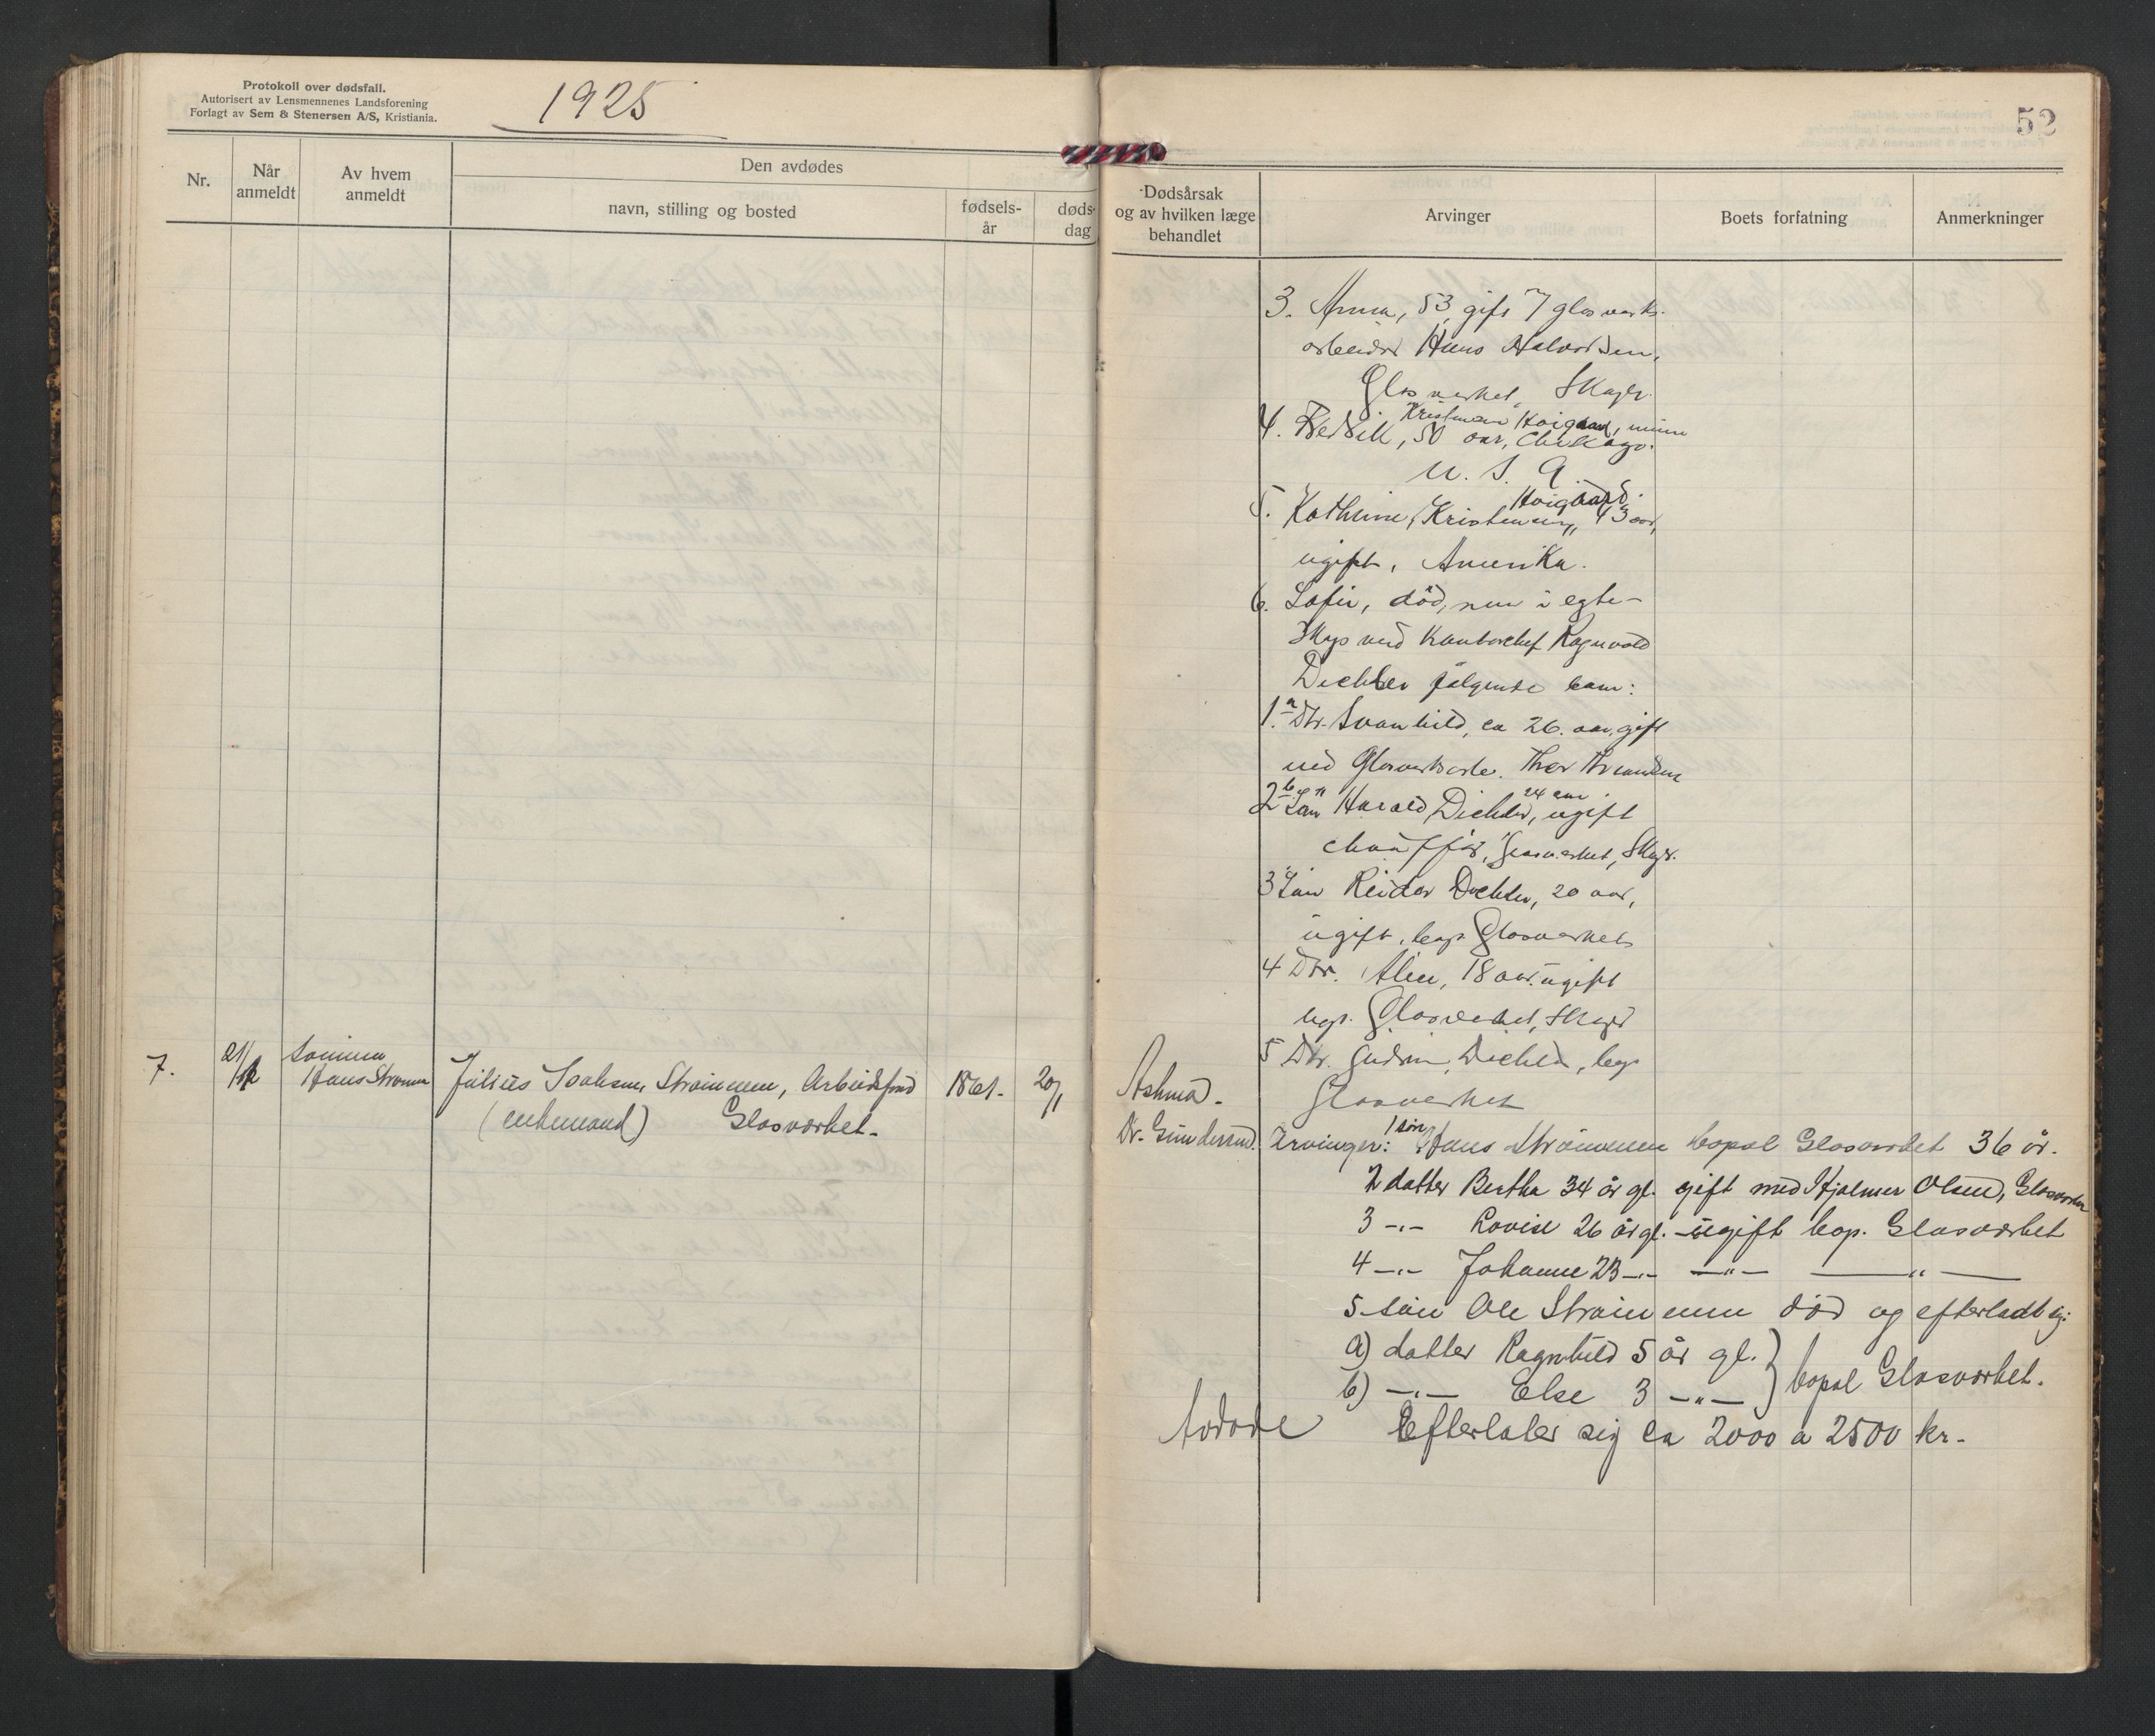 Protokoll over dødsfall.
Autorisert av Lensmennenes Landsforening
Forlagt av Sem & Stenersen A/S, Kristiania.
1925
52
Nr.
Når
anmeldt
Av hvem
anmeldt
Den avdødes
navn, stilling og bosted
fødsels-
år
døds-
dag
Dødsårsak
og av hvilken læge
behandlet
Arvinger
Boets forfatning
Anmerkninger
3. Anna, 53, gift m/ glasverks-
arbeider Hans Halvorsen,
Glasverket, Skoger.
Kristiansen Hoigaard,
4. Bedsill, 50 aar, Chikago.
U. S. A.
Hoigaard.
5. Kathrine Kristensen, 43 aar,
ugift, Amerika.
6. Sofie, død, i egte-
skap med Kontorchef Ragnvald
Dichler følgende barn:
1. a Dtr. Svanhild, ca 26. aar, gift
med Glasverksarb. Thor
24 aar
2 b Søn Harald Dichler, ugift
chauffør, Glasverket, Skogr.
3 Søn Reidar Dichler, 20 aar,
ugift, bop. Glasverket
4 Dtr. 18 aar, ugift
bop. Glasverket, Skogr
5 Dtr. Gudrun Dichler, bop
Glasverket
7.
21/1
Sønnen
Hans Strømm
Julius Isaksen Strømmen, Arbeidsfmd
(enkemand) Glasværket.
1861.
20/1
Asthma.
Dr. Gundersen.
Arvinger: 1 søn Hans Strømmen bopal Glasværket 36 år.
2 datter Bertha 34 år gl. gift med Hjalmer Olsen, Glasværket
3 -"- Lovise 26 år gl. ugift bop. Glasværket
4 -"- Johanne 23 -"- -"- -"-
5 søn Ole Strømmen død og efterladt sig:
a) datter Ragnhild 5 år gl. }
b) -"- Else 3 -"- } bopal Glasværket.
Avdøde Efterlater sig ca 2000 a 2500 kr.